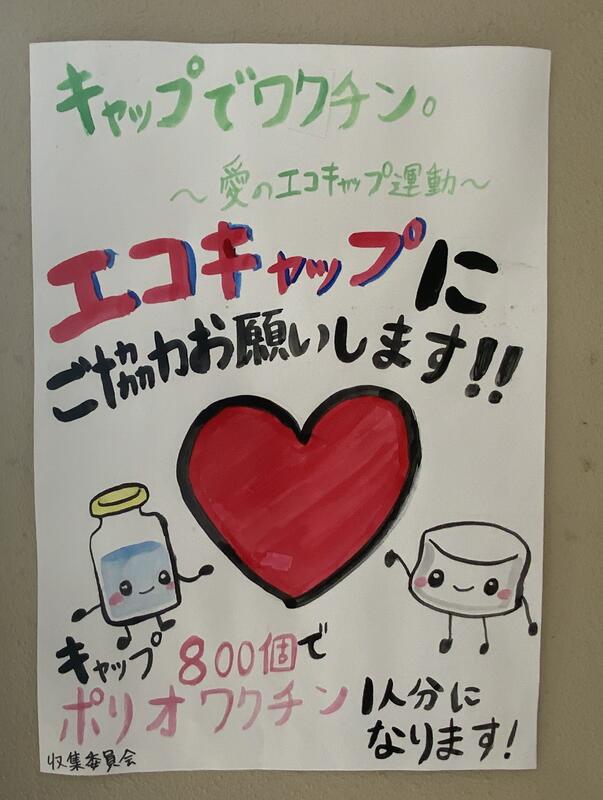 キャップでワクチン。
～愛のエコキャップ運動～
エコキャップに
ご協力お願いします!!
キャップ 800個で
ポリオワクチン 1人分に
なります!
収集委員会